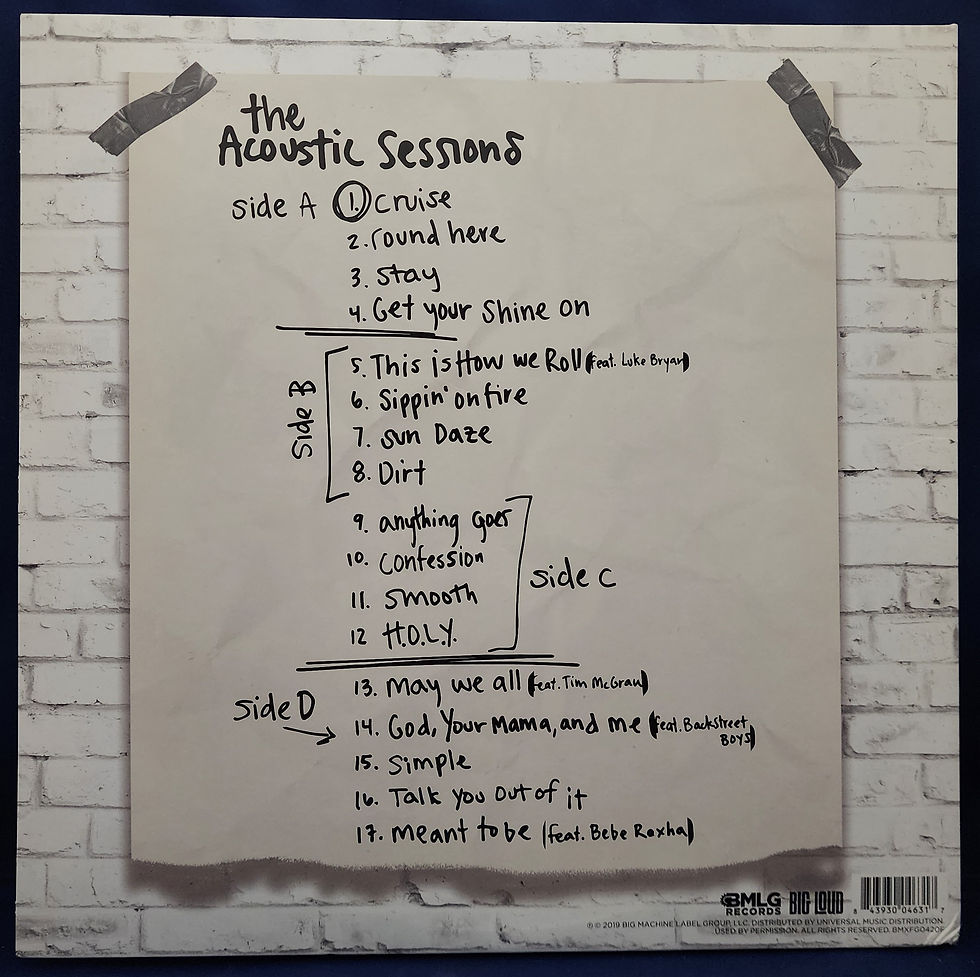 the
Acoustic Sessions
side A 1. cruise
2. round here
3. stay
4. Get your shine on
Side B
5. This is How we Roll (feat. Luke Bryan)
6. Sippin' on fire
7. sun Daze
8. Dirt
9. anything goes
10. confession
11. smooth
12 H.O.L.Y.
side C
13. may we all (feat. Tim McGraw)
side D
14. God, Your Mama, and me (feat. Backstreet
BOYS)
15. simple
16. Talk you out of it
17. meant to be (feat. Bebe Rexha)
BMLG
RECORDS
BIG LOUD
8 43930 04631 7
℗ © 2019 BIG MACHINE LABEL GROUP, LLC. DISTRIBUTED BY UNIVERSAL MUSIC DISTRIBUTION.
USED BY PERMISSION. ALL RIGHTS RESERVED. BMXFG0420F